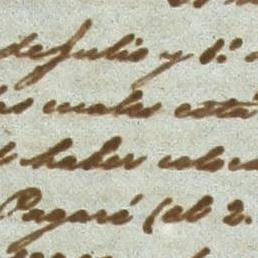 de Julio y 1.º
los cuales esta
haber coloca
Pagaré (al 2.